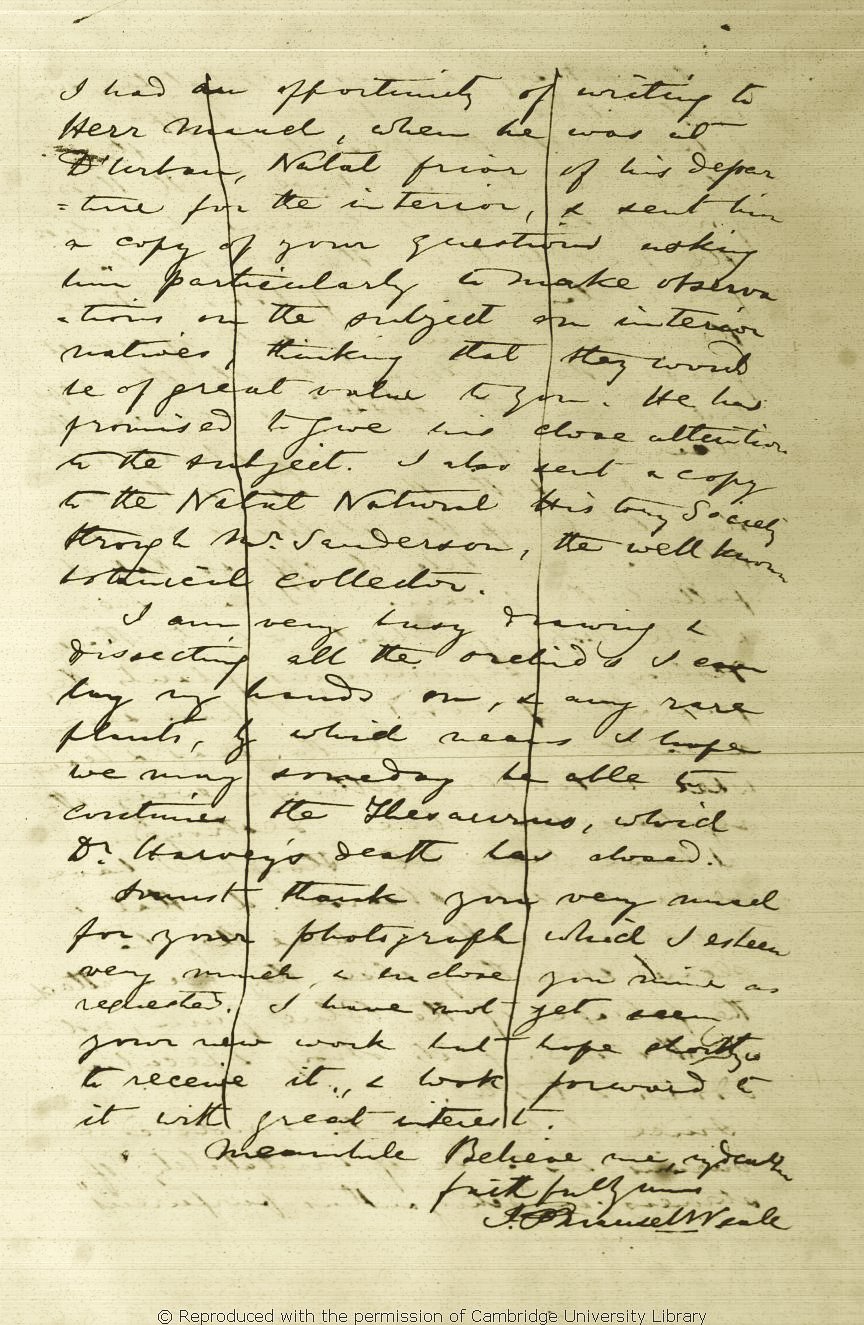 I had an opportunity of writing to
Herr Mauch, when he was at
D'Urban, Natal prior of his depar
=ture for the interior, & sent him
a copy of your questions asking
him particularly to make observa
=tions on the subject on interior
natives, thinking that they would
be of great value to you. He has
promised to give his close attention
to the subject. I also sent a copy
to the Natal Natural History Society
through Mr. Sanderson, the well known
botanical collector.
I am very busy drawing &
dissecting all the orchids I can
lay my hands on, & any rare
plants, by which means I hope
we may someday be able to
continue the Thesaurus, which
Dr. Harvey's death has closed.
I must thank you very much
for your photograph which I esteem
very much, & enclose you mine as
requested. I have not yet seen
your new work but hope shortly
to receive it, & look forward to
it with great interest.
Meanwhile Believe me, my dear Sir
faithfully yours
J. P. Mansel Weale
© Reproduced with the permission of Cambridge University Library